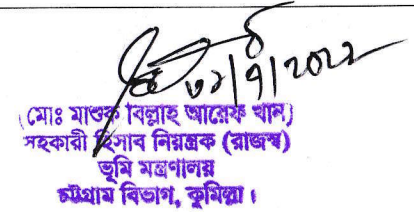 ৩১/৭/২০২২
(মোঃ মাশুক বিল্লাহ আরেফ খান)
সহকারী হিসাব নিয়ন্ত্রক (রাজস্ব)
ভূমি মন্ত্রণালয়
চট্টগ্রাম বিভাগ, কুমিল্লা।